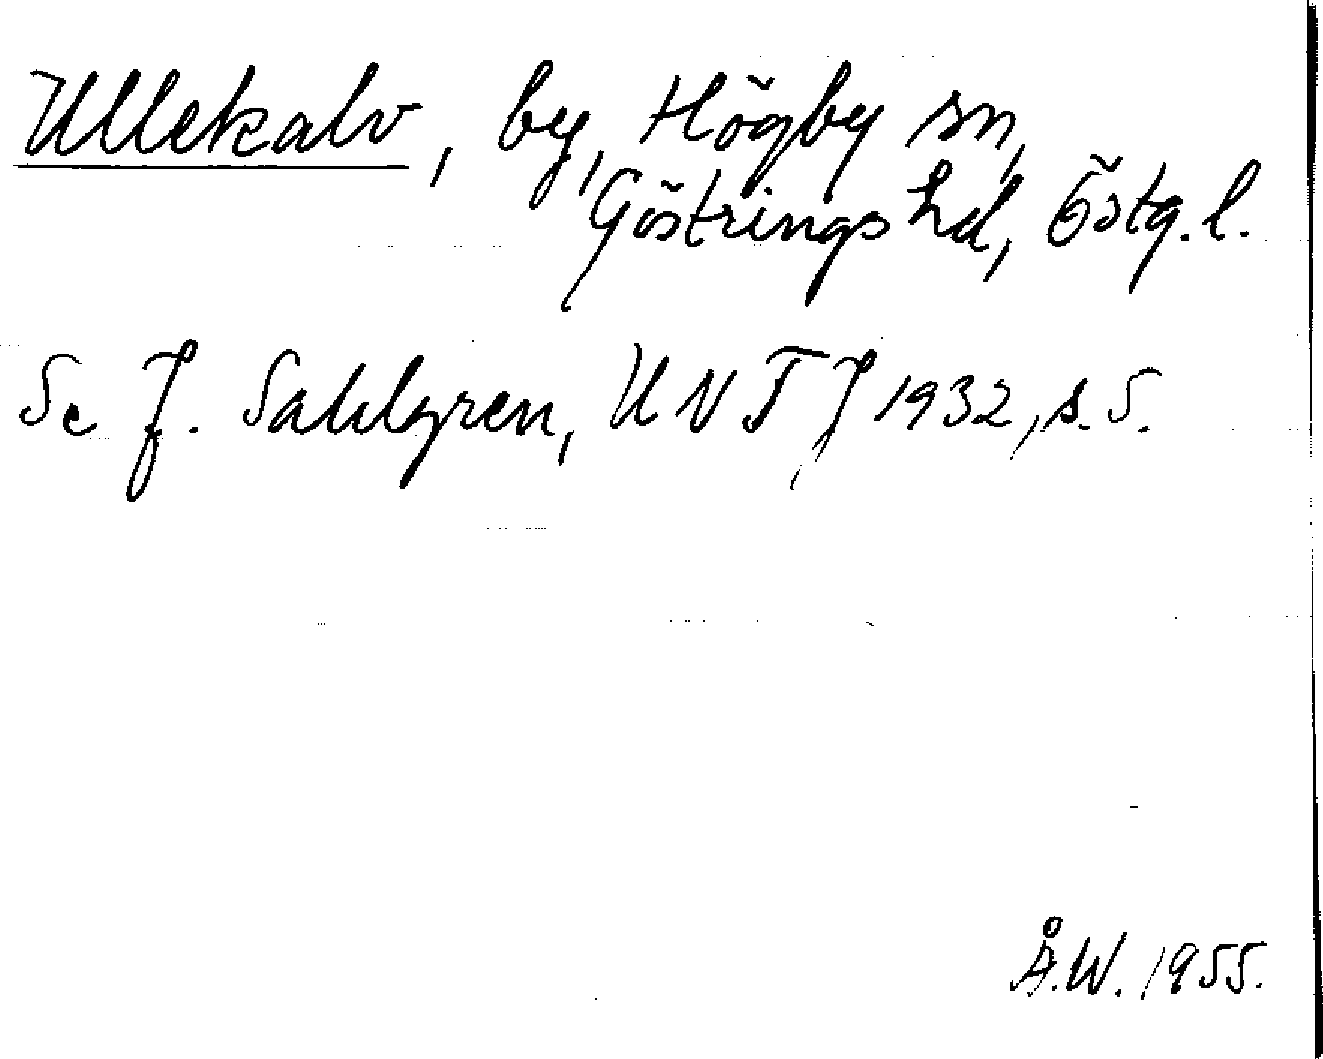 Ullekalv, by, Högby sn,
Göstrings hd, Östg. l.
Se J. Sahlgren, UNT J 1932, s. 5.
Å.W. 1955.